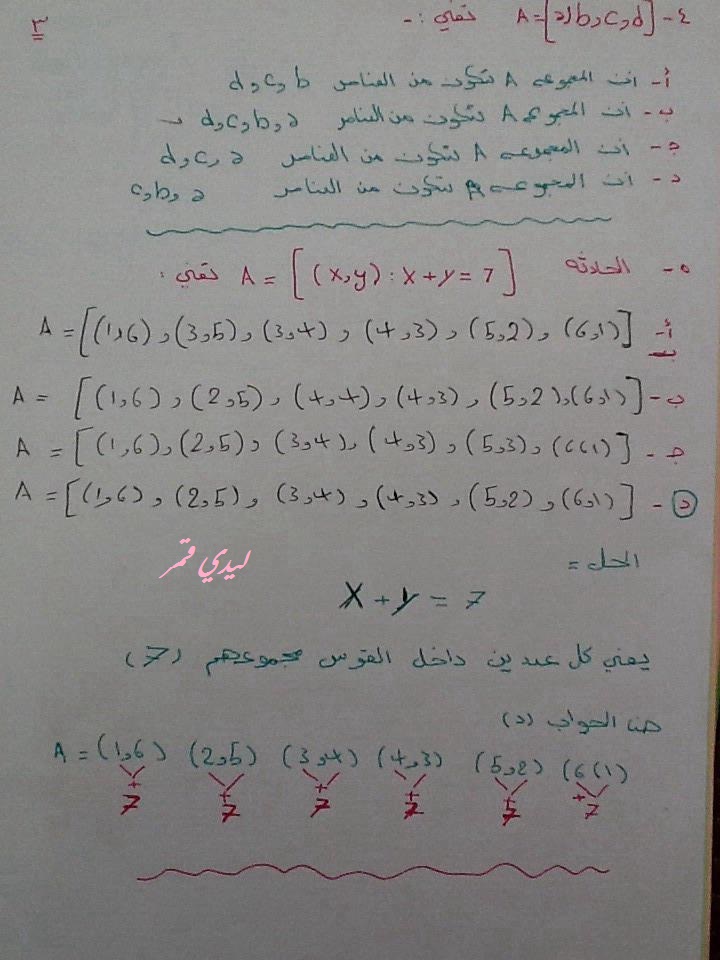 ٣
٤- A=[a,b,c,d] تعني :-
أ- ان المجموعه A تتكون من العناصر d,c,b
ب- ان المجموعه A تتكون من العناصر d,c,b,a
ج- ان المجموعه A تتكون من العناصر d,c,a
د- ان المجموعه A تتكون من العناصر c,b,a
٥- الحادثه A = [(x,y) : x+y = 7] تعني :
أ- A = [(1,6) , (3,5) , (3,4) , (4,3) , (5,2) , (6,1)]
ب- A = [(1,6) , (2,5) , (4,4) , (4,3) , (5,2) , (6,1)]
ج- A = [(1,6) , (2,5) , (3,4) , (4,3) , (5,3) , (6,1)]
د- A = [(1,6) , (2,5) , (3,4) , (4,3) , (5,2) , (6,1)]
الحل =
ليدي قمر
X + y = 7
يعني كل عددين داخل القوس مجموعهم (7)
هنا الجواب (د)
A = (1,6) (2,5) (3,4) (4,3) (5,2) (6,1)
+ + + + + +
7 7 7 7 7 7